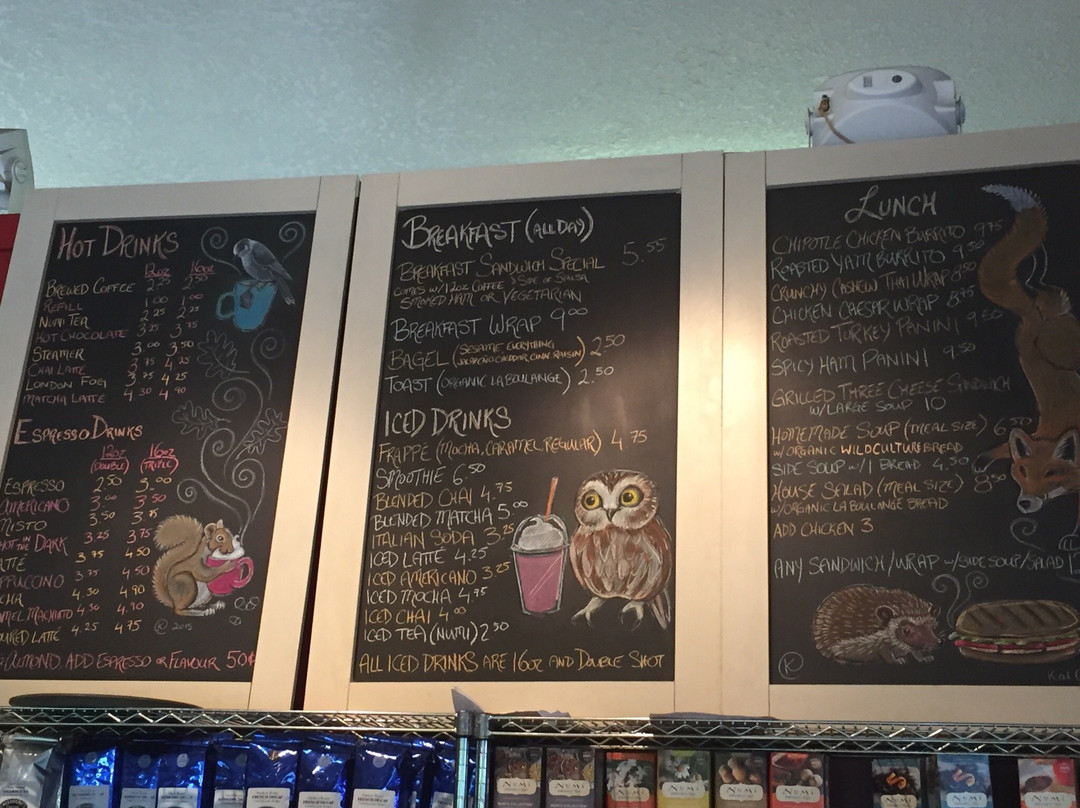 HOT DRINKS
12oz 16oz
BREWED COFFEE 2.25 2.50
REFILL 1.00 1.00
NUMI TEA 2.25 2.25
HOT CHOCOLATE 3.25 3.75
STEAMER 3.00 3.50
CHAI LATTE 3.75 4.25
LONDON FOG 3.75 4.25
MATCHA LATTE 4.30 4.90
ESPRESSO DRINKS
12oz 16oz
(DOUBLE) (TRIPLE)
ESPRESSO 2.50 3.00
AMERICANO 3.00 3.50
MISTO 3.50 3.75
HOT IN THE DARK 3.25 3.75
ATTE 3.75 4.50
PPUCCINO 3.75 4.50
CHA 4.30 4.90
MEL MACHIATO 4.30 4.90
OURED LATTE 4.25 4.75
ALMOND ADD ESPRESSO OR FLAVOUR 50¢
© 2015
BREAKFAST (ALL DAY)
BREAKFAST SANDWICH SPECIAL 5.55
COMES W/12oz COFFEE & SIDE OF SALSA
SMOKED HAM OR VEGETARIAN
BREAKFAST WRAP 9.00
BAGEL (SESAME, EVERYTHING, JALAPEÑO CHEDDAR, CINN. RAISIN) 2.50
TOAST (ORGANIC LA BOULANGE) 2.50
ICED DRINKS
FRAPPÉ (MOCHA, CARAMEL, REGULAR) 4.75
SMOOTHIE 6.50
BLENDED CHAI 4.75
BLENDED MATCHA 5.00
ITALIAN SODA 3.25
ICED LATTÉ 4.25
ICED AMERICANO 3.25
ICED MOCHA 4.75
ICED CHAI 4.00
ICED TEA (NUMI) 2.50
ALL ICED DRINKS ARE 16oz AND DOUBLE SHOT
LUNCH
CHIPOTLE CHICKEN BURRITO 9.75
ROASTED YAM BURRITO 9.50
CRUNCHY CASHEW THAI WRAP 8.50
CHICKEN CAESAR WRAP 8.75
ROASTED TURKEY PANINI 9.50
SPICY HAM PANINI 9.50
GRILLED THREE CHEESE SANDWICH
W/LARGE SOUP 10
HOMEMADE SOUP (MEAL SIZE) 6.50
W/ORGANIC WILDCULTURE BREAD
SIDE SOUP W/1 BREAD 4.50
HOUSE SALAD (MEAL SIZE) 8.50
W/ORGANIC LA BOULANGE BREAD
ADD CHICKEN 3
ANY SANDWICH/WRAP W/SIDE SOUP/SALAD
K
NUMI
NUMI
NUMI
NUMI
NUMI
NUMI